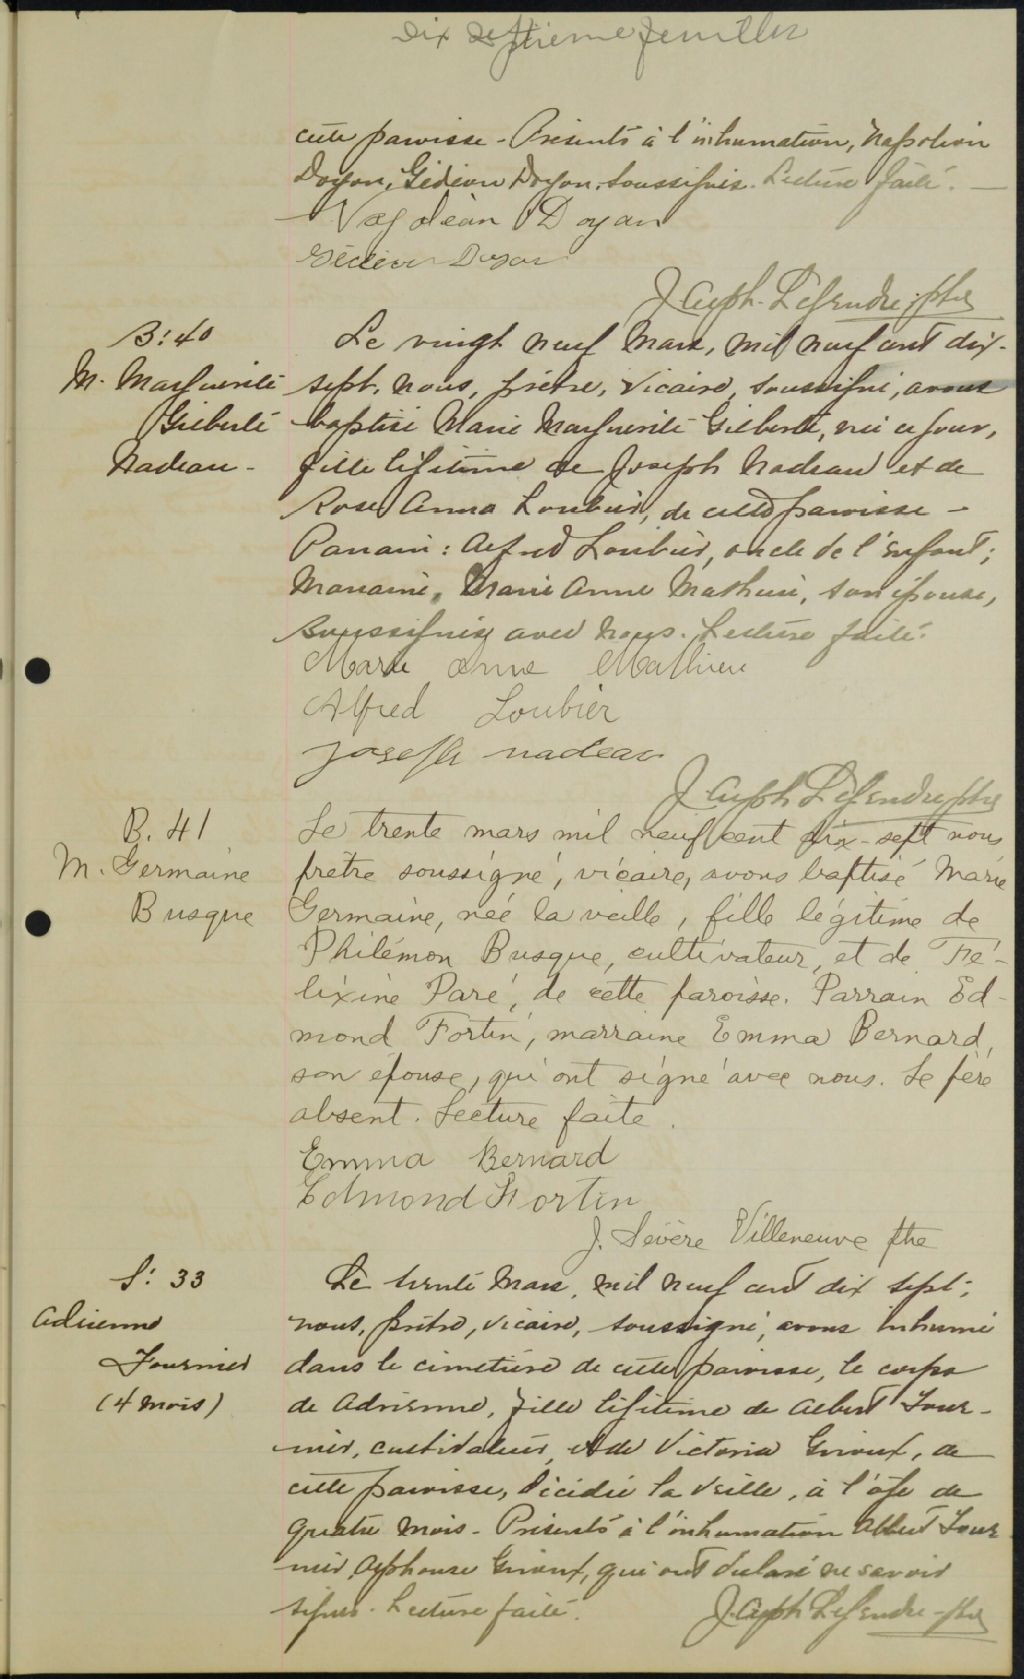 Dix septième feuillet
cette paroisse - Présents à l'inhumation, Napoléon
Doyon, Gédéon Doyon, soussignés. Lecture faite. -
Napoléon Doyon
Gédéon Doyon
J. Alph. Legendre, ptre
B: 40
M. Marguerite
Gilberte
Nadeau -
Le vingt neuf Mars, mil neuf cent dix-
sept, nous, prêtre, vicaire, soussigné, avons
baptisé Marie Marguerite Gilberte, née ce jour,
fille légitime de Joseph Nadeau et de
Rose Anna Loubier, de cette paroisse -
Parrain : Alfred Loubier, oncle de l'enfant ;
Marraine, Marie Anne Mathieu, son épouse,
soussignés avec nous. Lecture faite.
Marie Anne Mathieu
Alfred Loubier
Joseph nadeau
J. Alph Legendre ptre
B. 41
M. Germaine
Busque
Le trente mars mil neuf cent dix-sept nous
prêtre soussigné, vicaire, avons baptisé Marie
Germaine, née la veille, fille légitime de
Philémon Busque, cultivateur, et de Fé-
lixine Paré, de cette paroisse. Parrain Ed-
mond Fortin, marraine Emma Bernard,
son épouse, qui ont signé avec nous. Le père
absent. Lecture faite.
Emma Bernard
Edmond Fortin
J. Sévère Villeneuve ptre
S: 33
Adrienne
Fournier
(4 mois)
Le trente Mars, mil neuf cent dix sept ;
nous, prêtre, vicaire, soussigné, avons inhumé
dans le cimetière de cette paroisse, le corps
de Adrienne, fille légitime de Albert Four-
nier, cultivateur, et de Victoria Giroux, de
cette paroisse, décédée la veille, à l'âge de
quatre mois - Présents à l'inhumation Albert Four
nier, Alphonse Giroux, qui ont déclaré ne savoir
signer. Lecture faite.
J. Alph Legendre - ptre